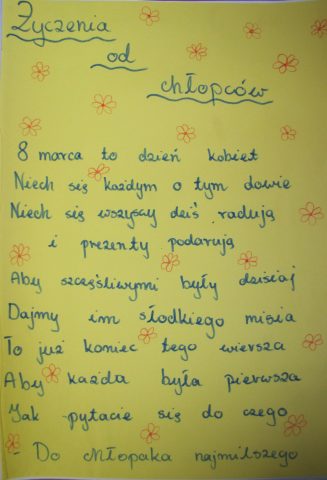 Życzenia
od
chłopców
8 marca to dzień kobiet
Niech się każdym o tym dowie
Niech się wszyscy dziś radują
i prezenty podarują
Aby szczęśliwymi były dzisiaj
Dajmy im słodkiego misia
To już koniec tego wiersza
Aby każda była pierwsza
Jak pytacie się do czego
- Do chłopaka najmilszego